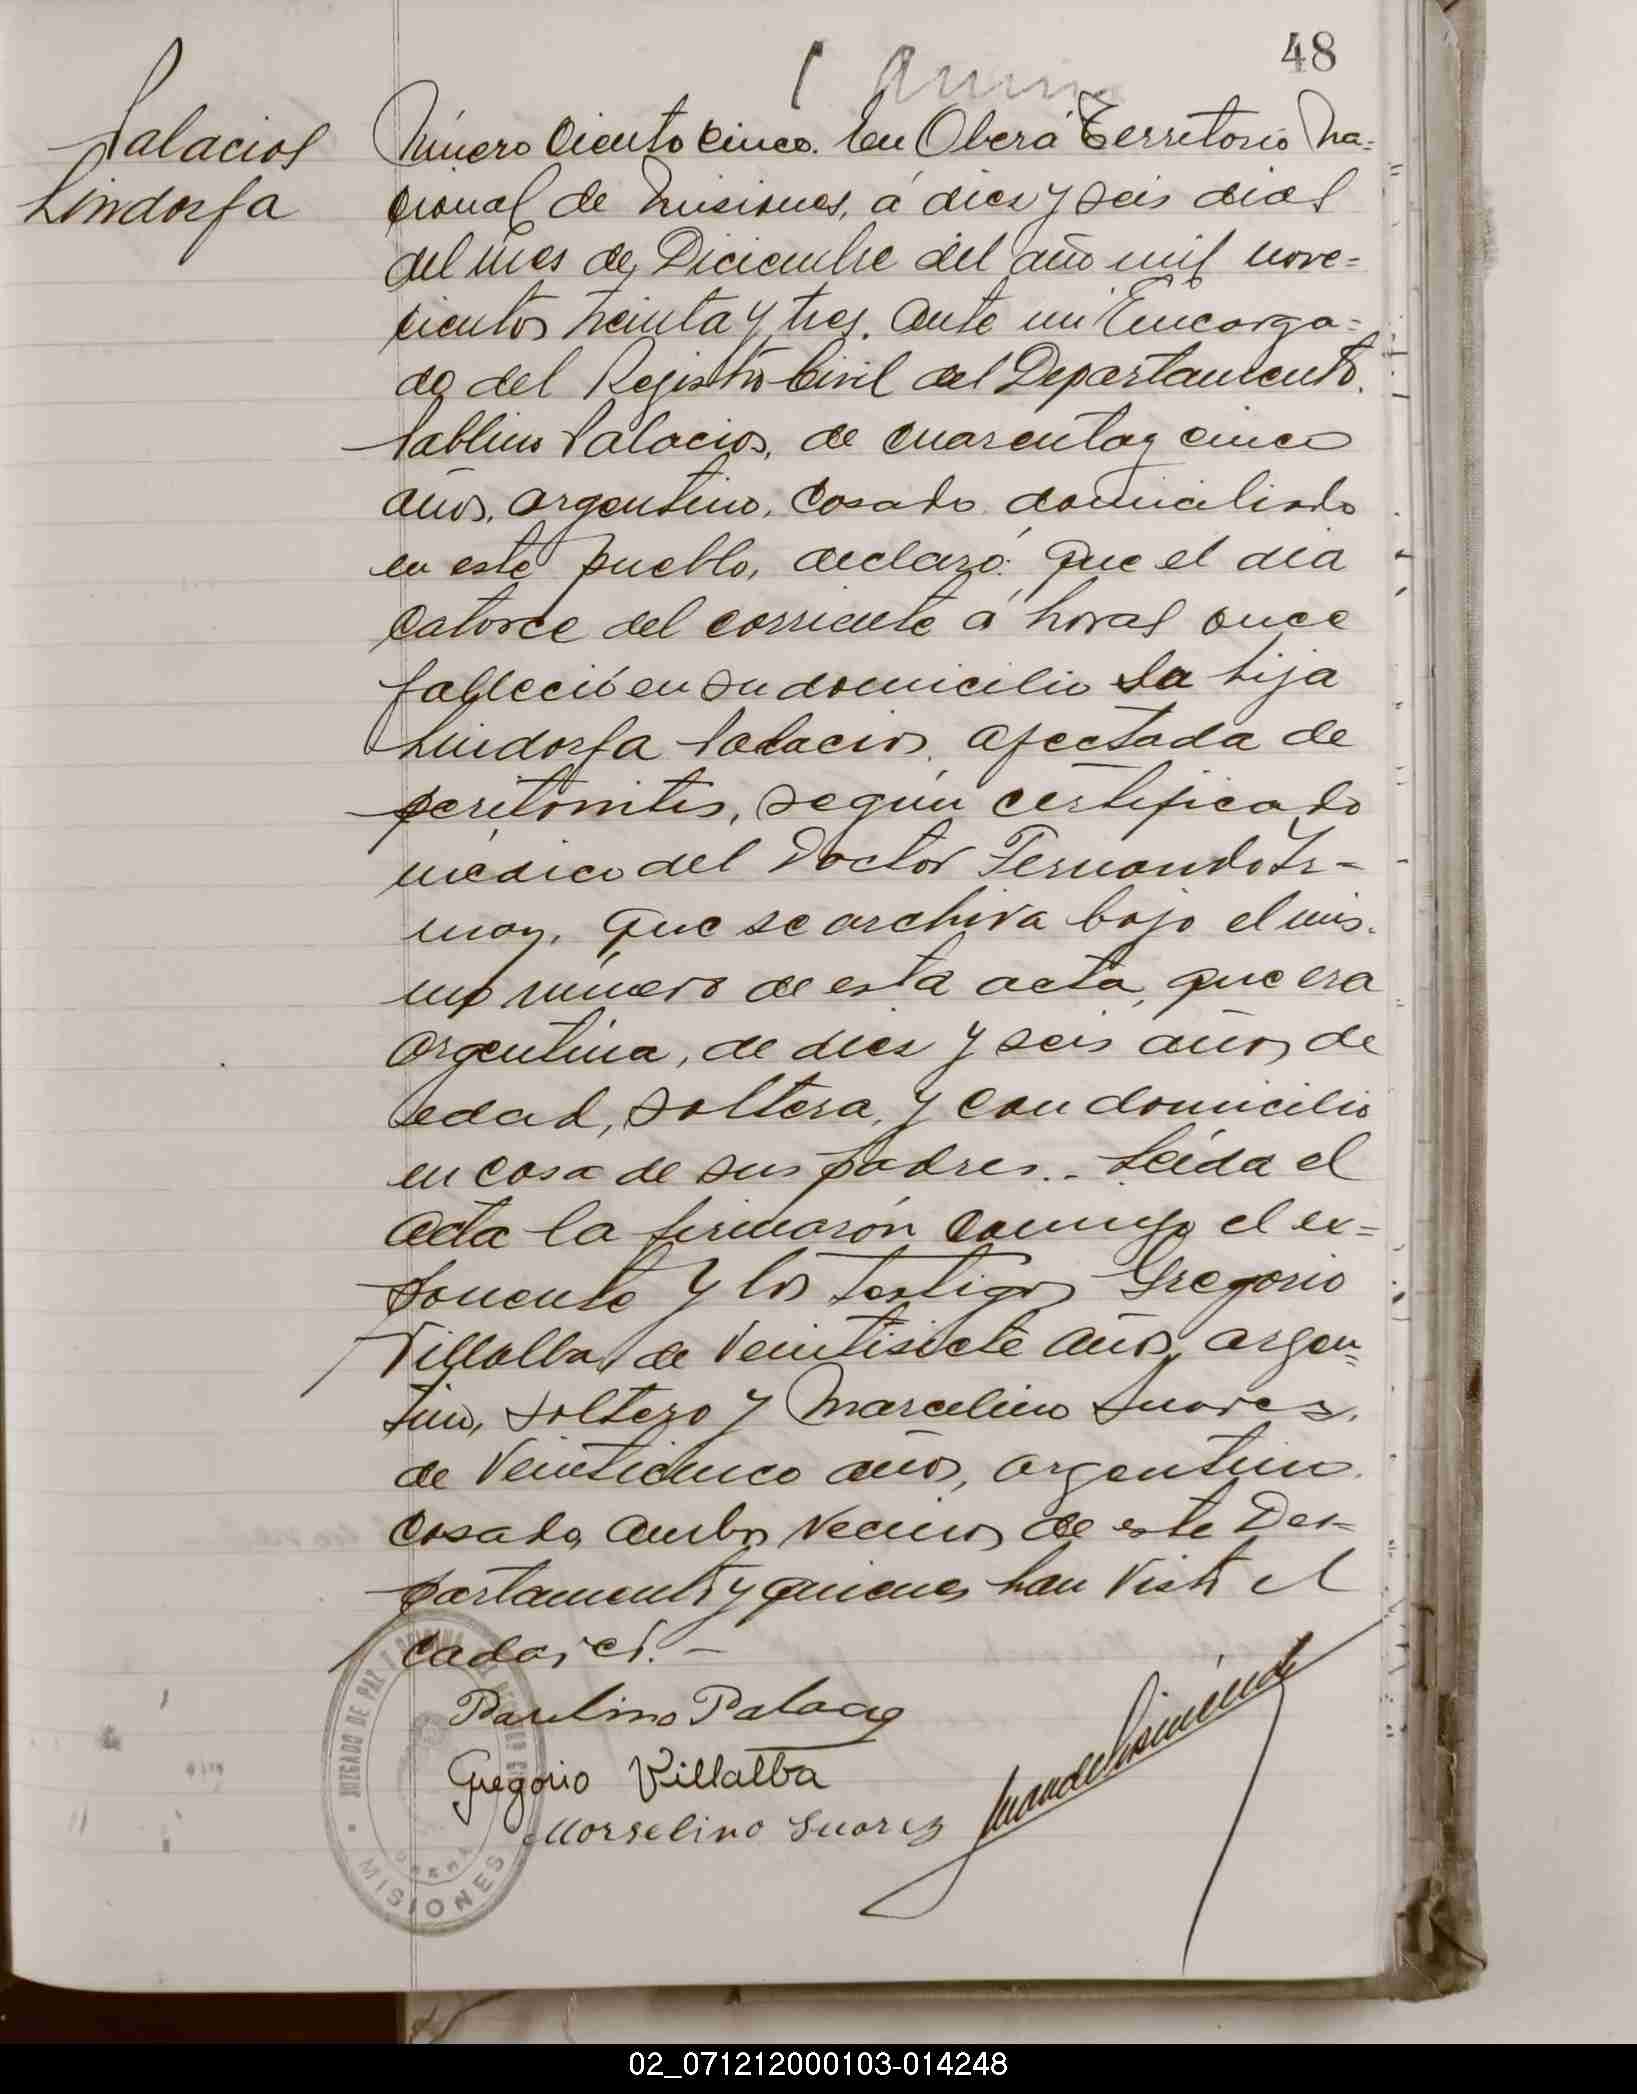 48
Palacios
Lindorfa
Número Ciento cinco. En Oberá Territorio Na=
cional de Misiones, á diez y seis dias
del mes de Diciembre del año mil nove=
cientos treinta y tres. Ante mi Encarga=
do del Registro Civil del Departamento.
Pablino Palacios, de cuarenta y cinco
años, argentino, casado domiciliado
en este pueblo, declaró: Que el dia
catorce del corriente á horas once
falleció en su domicilio su hija
Lindorfa Palacios, afectada de
peritonitis, según certificado
médico del Doctor Fernando Ir=
may, que se archiva bajo el mis-
mo número de esta acta, que era
argentina, de diez y seis años de
edad, soltera, y con domicilio
en casa de sus padres.- Leída el
acta la firmarón conmigo el ex=
ponente y los testigos Gregorio
Villalba, de veintisiete años, argen=
tino, soltero y Marcelino Suarez,
de veinticinco años, argentino.
casado, ambos vecinos de este De=
partamento y quienes han visto el
cadaver.-
Paulino Palacio
Gregorio Villalba
Marselino Suarez
JUZGADO DE PAZ
OBERA
MISIONES
02_071212000103-014248